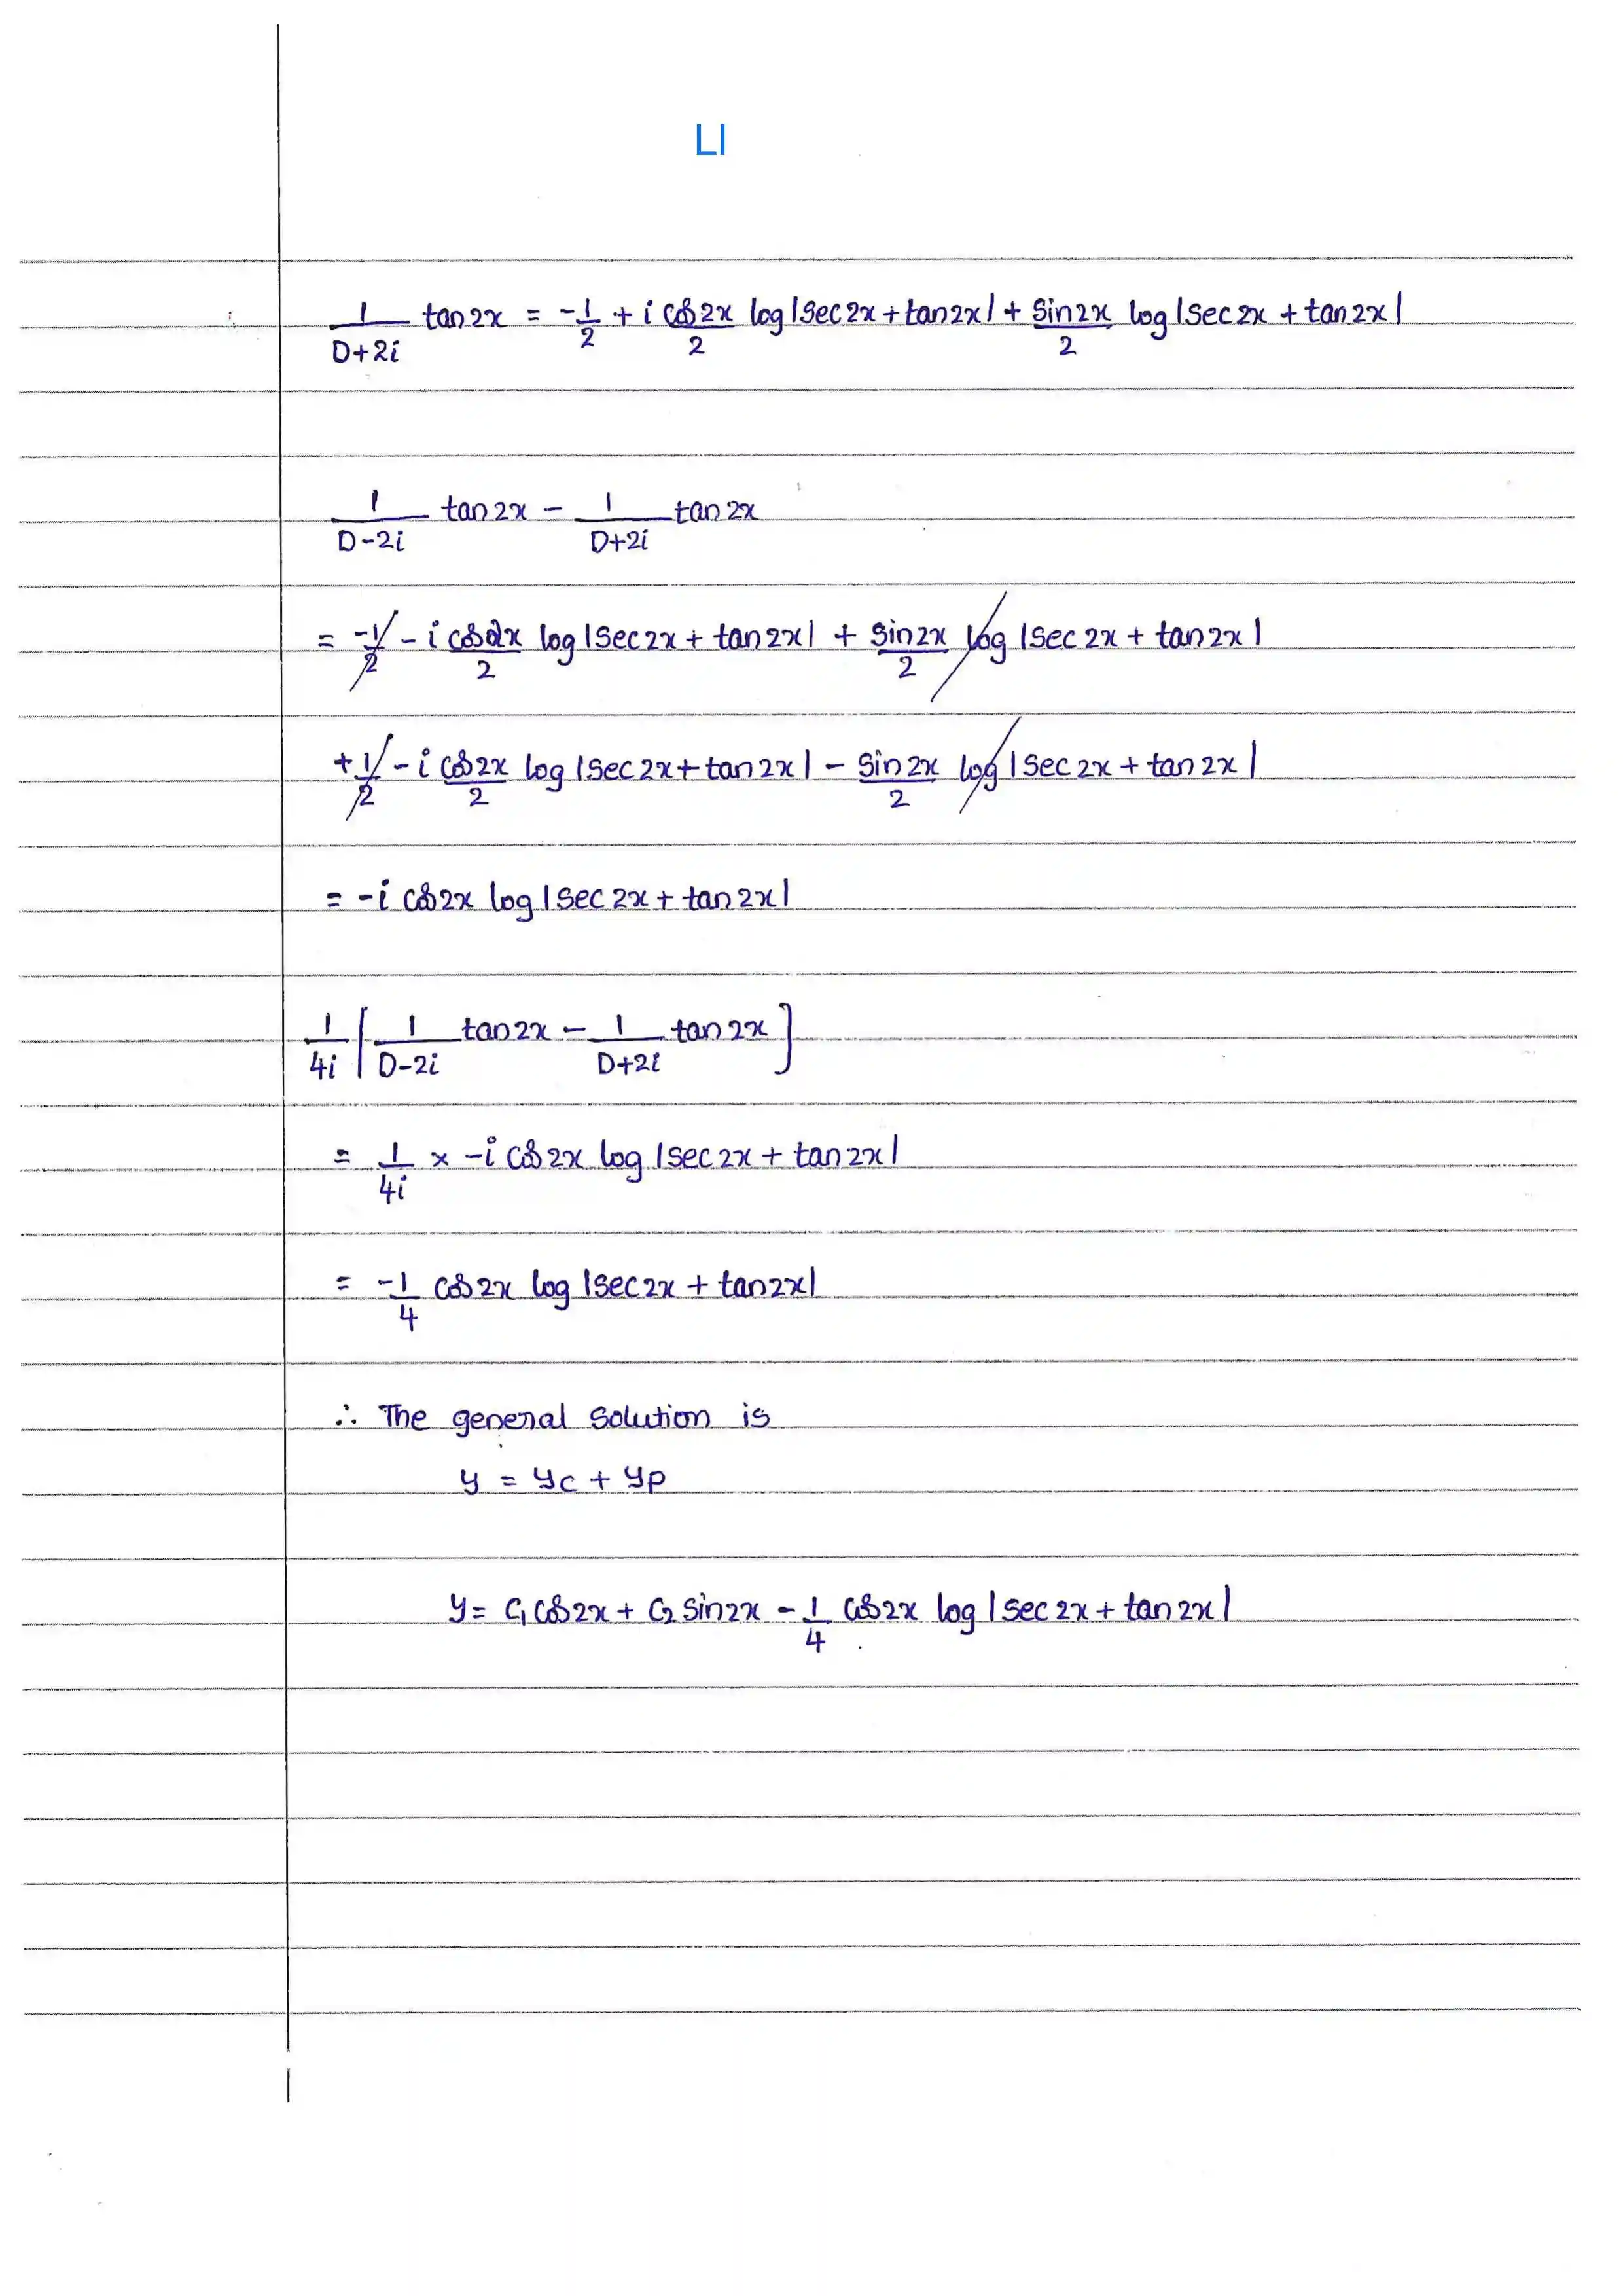 LI
1/(D+2i) tan2x = -1/2 + i cos2x/2 log|sec2x+tan2x| + sin2x/2 log|sec2x + tan2x|
1/(D-2i) tan2x - 1/(D+2i) tan2x
= -1/2 - i cos2x/2 log|sec2x + tan2x| + sin2x/2 log|sec2x + tan2x|
+1/2 - i cos2x/2 log|sec2x+tan2x| - sin2x/2 log|sec2x + tan2x|
= -i cos2x log|sec2x + tan2x|
1/4i [1/(D-2i) tan2x - 1/(D+2i) tan2x]
= 1/4i × -i cos2x log|sec2x + tan2x|
= -1/4 cos2x log|sec2x + tan2x|
∴ The general solution is
y = yc + yp
y = c₁cos2x + c₂ sin2x - 1/4 cos2x log|sec2x + tan2x|